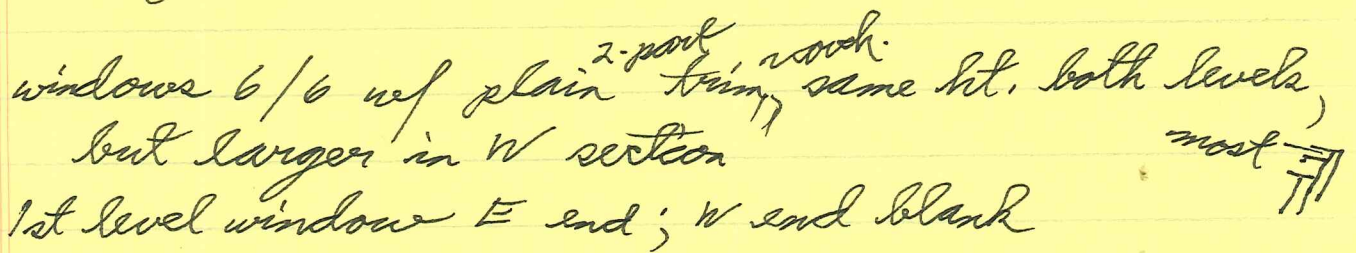 windows 6/6 w/ plain 2-part trim, same ht. both levels,
but larger in W section most
1st level window E end; W end blank